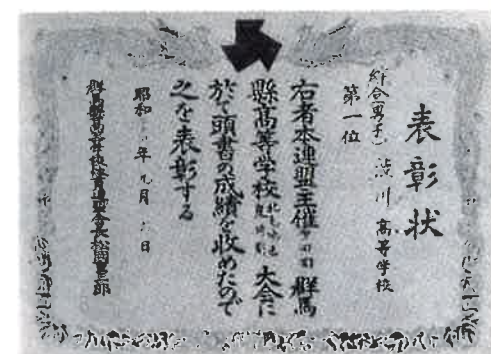 表彰状
綜合(男子) 渋川高等学校
第一位
右者本連盟主催 群馬
縣高等学校 大会に
於て頭書の成績を收めたので
之を表彰する
昭和 年九月 日
群馬縣高等学校体育連盟会長